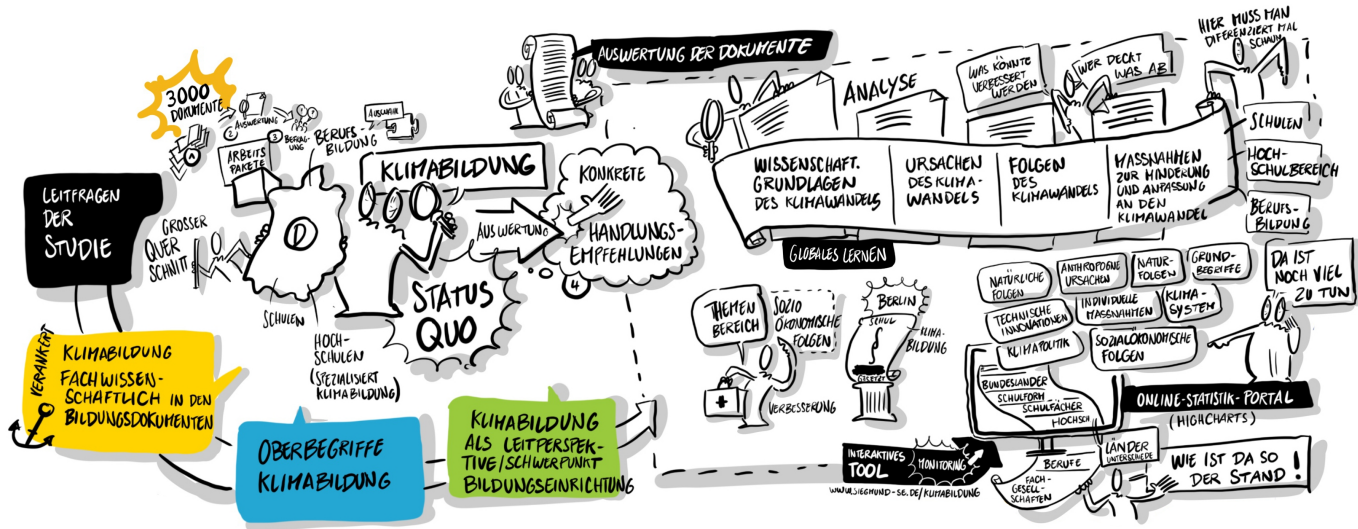 3000
DOKUMENTE
1
2
AUSWERTUNG
3
BEFRAG-
UNG
BERUFS-
BILDUNG
AUSWAHL
ARBEITS
PAKETE
LEITFRAGEN
DER
STUDIE
GROSSER
QUER
SCHNITT
D
SCHULEN
HOCH-
SCHULEN
(SPEZIALISIERT
KLIMABILDUNG)
KLIMABILDUNG
STATUS
QUO
AUSWERTUNG
KONKRETE
HANDLUNGS-
EMPFEHLUNGEN
4
VERANKERT
KLIMABILDUNG
FACHWISSEN-
SCHAFTLICH IN DEN
BILDUNGSDOKUMENTEN
OBERBEGRIFFE
KLIMABILDUNG
KLIMABILDUNG
ALS LEITPERSPEK-
TIVE/SCHWERPUNKT
BILDUNGSEINRICHTUNG
AUSWERTUNG DER DOKUMENTE
ANALYSE
WAS KÖNNTE
VERBESSERT
WERDEN
WER DECKT
WAS AB
HIER MUSS MAN
DIFERENZIERT MAL
SCHAUN
WISSENSCHAFT.
GRUNDLAGEN
DES KLIMAWANDELS
URSACHEN
DES KLIMA-
WANDELS
FOLGEN
DES
KLIMAWANDELS
MASSNAHMEN
ZUR MINDERUNG
UND ANPASSUNG
AN DEN
KLIMAWANDEL
SCHULEN
HOCH-
SCHULBEREICH
BERUFS-
BILDUNG
GLOBALES LERNEN
THEMEN
BEREICH
SOZIO
ÖKONOMISCHE
FOLGEN
VERBESSERUNG
BERLIN
SCHUL
GESETZ
KLIMA-
BILDUNG
NATÜRLICHE
FOLGEN
ANTHROPOGNE
URSACHEN
NATUR-
FOLGEN
GRUND-
BEGRIFFE
TECHNISCHE
INNOVATIONEN
INDIVIDUELLE
MASSNAHMEN
KLIMA-
SYSTEM
KLIMAPOLITIK
SOZIALÖKONOMISCHE
FOLGEN
DA IST
NOCH VIEL
ZU TUN
BUNDESLÄNDER
SCHULFORM
SCHULFÄCHER
HOCHSCH
ONLINE-STATISTIK-PORTAL
(HIGHCHARTS)
INTERAKTIVES
TOOL
MONITORING
WWW.SIEGMUND-SE.DE/KLIMABILDUNG
BERUFE
FACH-
GESELL-
SCHAFTEN
LÄNDER
UNTERSCHIEDE
WIE IST DA SO
DER STAND!